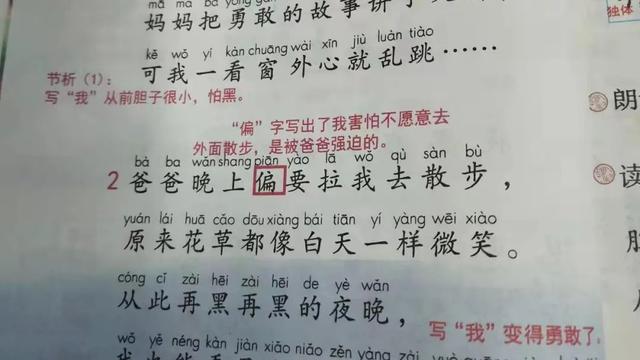 mā ma bǎ yǒng gǎn
妈妈把勇敢的故事讲
独体
kě wǒ yí kàn chuāng wài xīn jiù luàn tiào
可我一看窗外心就乱跳……
节析（1）：
写“我”从前胆子很小，怕黑。
朗
“偏”字写出了我害怕不愿意去
外面散步，是被爸爸强迫的。
bà ba wǎn shang piān yào lā wǒ qù sàn bù
2 爸爸晚上偏要拉我去散步，
读
yuán lái huā cǎo dōu xiàng bái tiān yí yàng wēi xiào
原来花草都像白天一样微笑。
cóng cǐ zài hēi zài hēi de yè wǎn
从此再黑再黑的夜晚，
写“我”变得勇敢了
wǒ yě néng kàn jiàn xiǎo niǎo zěn yàng zài yuè